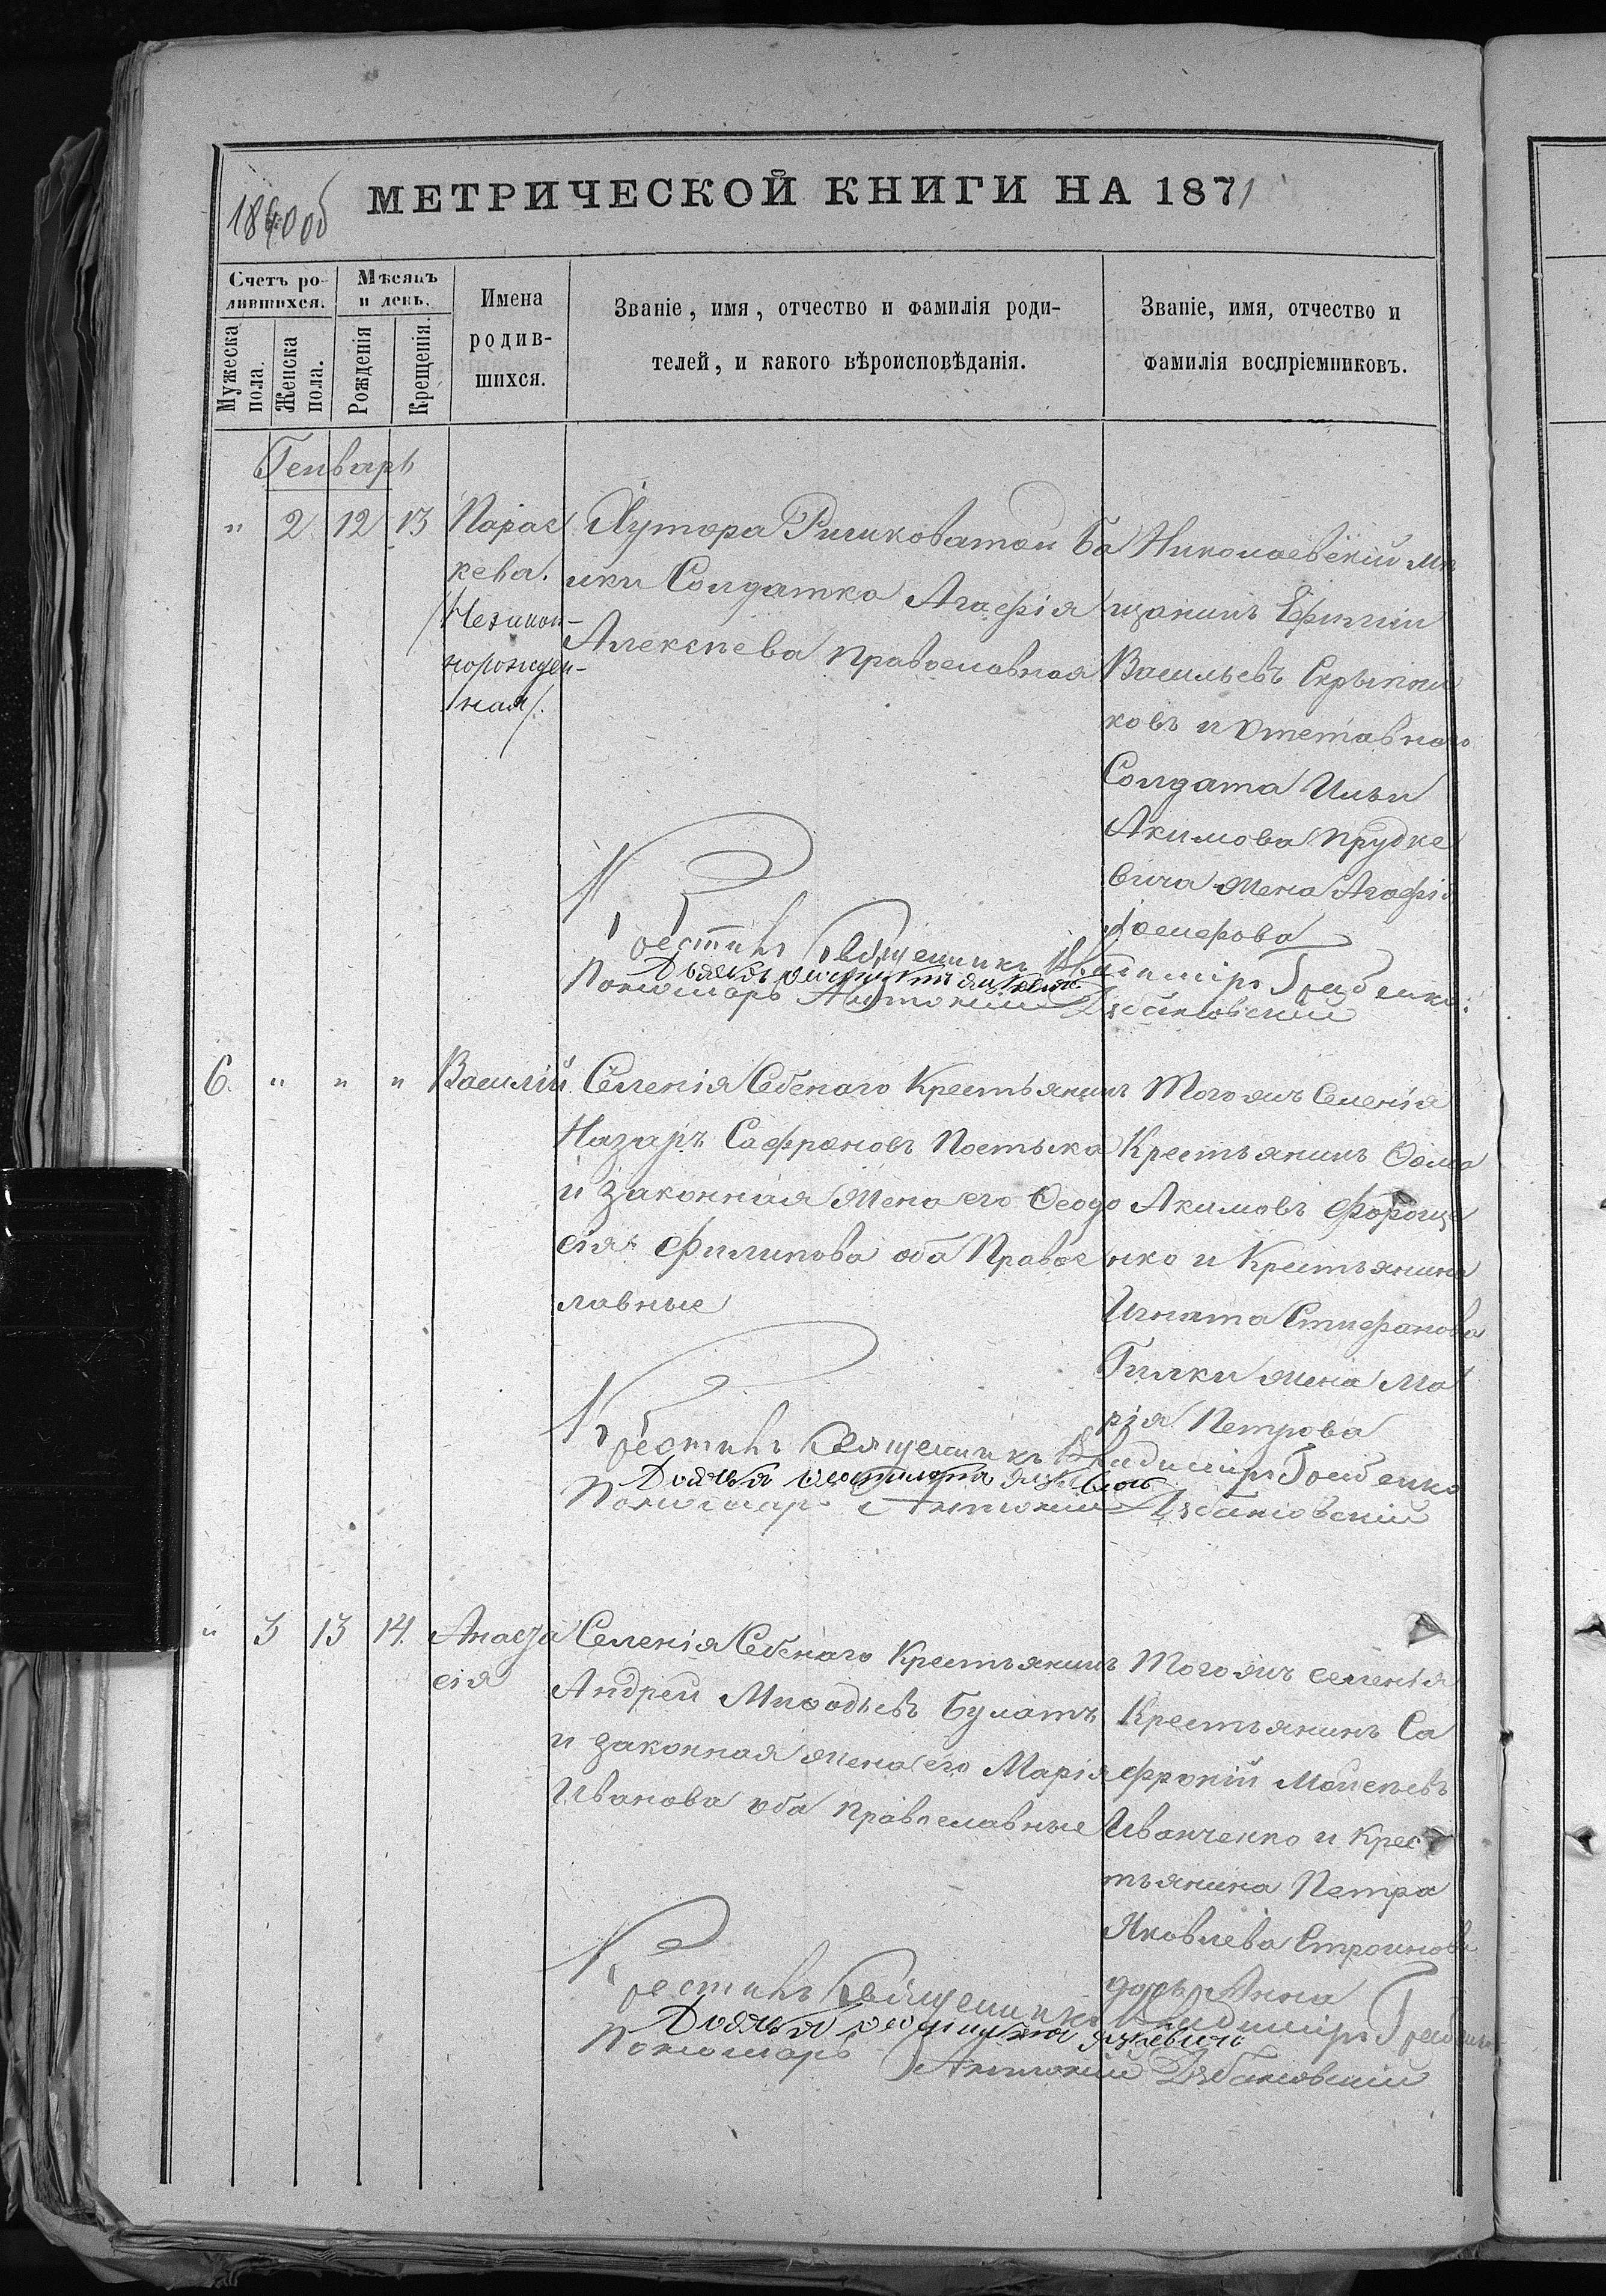 МЕТРИЧЕСКОЙ КНИГИ НА 1871
об
Счетъ ро-
дившихся.
Мѣсяцъ
и день.
Мужеска
пола.
Женска
пола.
Рожденія
Крещенія.
Имена
родив-
шихся.
Званіе, имя, отчество и фамилія роди-
телей, и какого вѣроисповѣданія.
Званіе, имя, отчество и
фамилія воспріемниковъ.
Генварь
" 2 12 13
Парас
кева.
/Незакон-
норожден-
ная/.
Хутора Рички­ватой ба
лки Солдатка Агафія
Алексѣева православная
Николаевскій мѣ
щанинъ Ефимій
Васильевъ Скрыпни
ковъ и Отставнаго
Солдата Ильи
Акимова Прудке
вича жена Агафія
Крестилъ Священникъ Владиміръ Гребенко
Дьячекъ
Пономарь Антоній Дзбановскій
6. " " "
Василій
Селенія Себенаго Крестьянинъ
Назаръ Сафроновъ Постыка
и законная жена его Ѳеодо
сія Филипова оба Правос
лавные
Того жъ Селенія
Крестьянинъ Ѳома
Акимовъ Фороще
нко и Крестьянина
Игната Стефанова
Гилки жена Ма
рія Петрова
Крестилъ Священникъ Владиміръ Гребенко
Дьячекъ
Пономарь Антоній Дзбановскій
" 3 13 14.
Анаста
сія
Селенія Себенаго Крестьянинъ
Андрей Миѳодьевъ Булатъ
и законная жена его Марія
Иванова оба православные
Того жъ селенія
Крестьянинъ Са
фроній Моисеевъ
Иванченко и Крес
тьянина Петра
Яковлева Строинова
дочь Анна
Крестилъ Священникъ Владиміръ Гребенко
Дьячекъ
Пономарь Антоній Дзбановскій